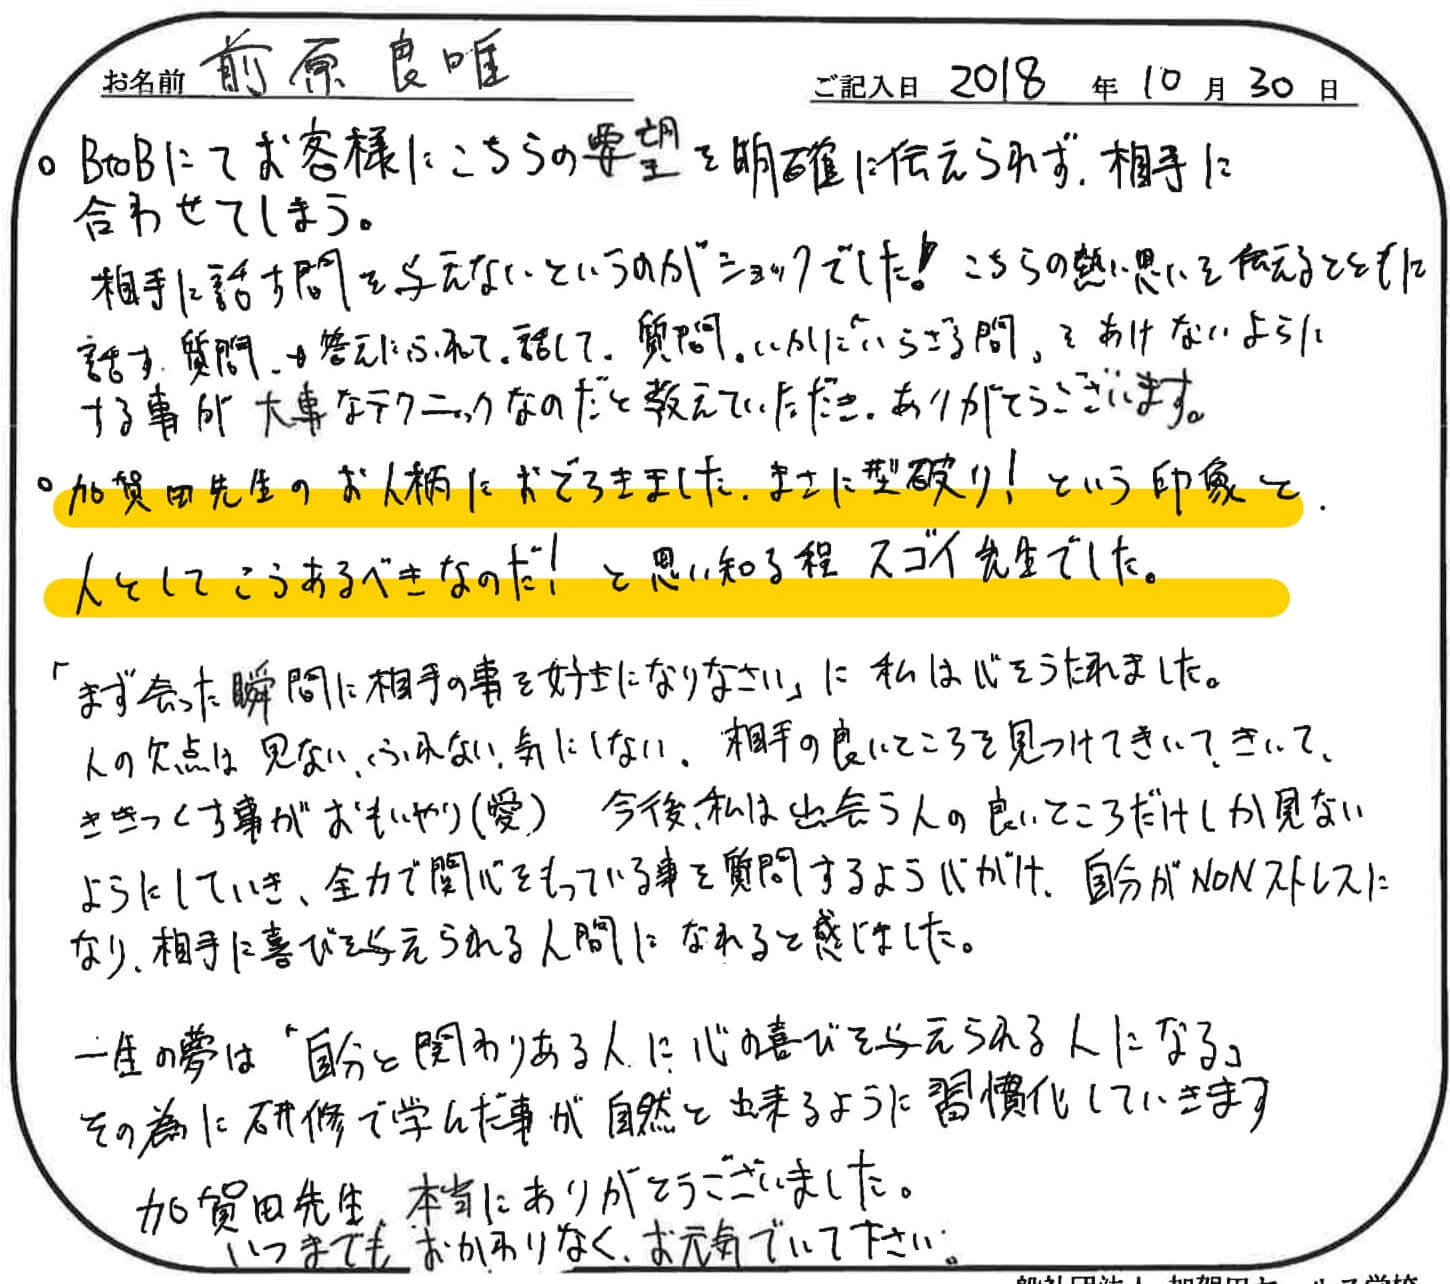 お名前 前原良唯 ご記入日 2018 年 10 月 30 日
。BtoBにてお客様にこちらの要望を明確に伝えられず、相手に
合わせてしまう。
相手に話す間を与えないというのがショックでした！こちらの熱い思いを伝えるとともに
話す、質問、答えにふれて、話して、質問。いかにいらざる間、をあけないように
する事が大事なテクニックなのだと教えていただき、ありがとうございます。
。加賀田先生のお人柄におどろきました。まさに型破り！という印象と、
人としてこうあるべきなのだ！と思い知る程スゴイ先生でした。
「まず会った瞬間に相手の事を好きになりなさい」に私は心をうたれました。
人の欠点は見ない、ふれない、気にしない。相手の良いところを見つけてきいて、きいて、
ききつくす事がおもいやり(愛) 今後、私は出会う人の良いところだけしか見ない
ようにしていき、全力で関心をもっている事を質問するよう心がけ、自分がNONストレスに
なり、相手に喜びを与えられる人間になれると感じました。
一生の夢は「自分と関わりある人に心の喜びを与えられる人になる」
その為に研修で学んだ事が自然と出来るように習慣化していきます
加賀田先生、本当にありがとうございました。
いつまでも、おかわりなく、お元気でいて下さい。